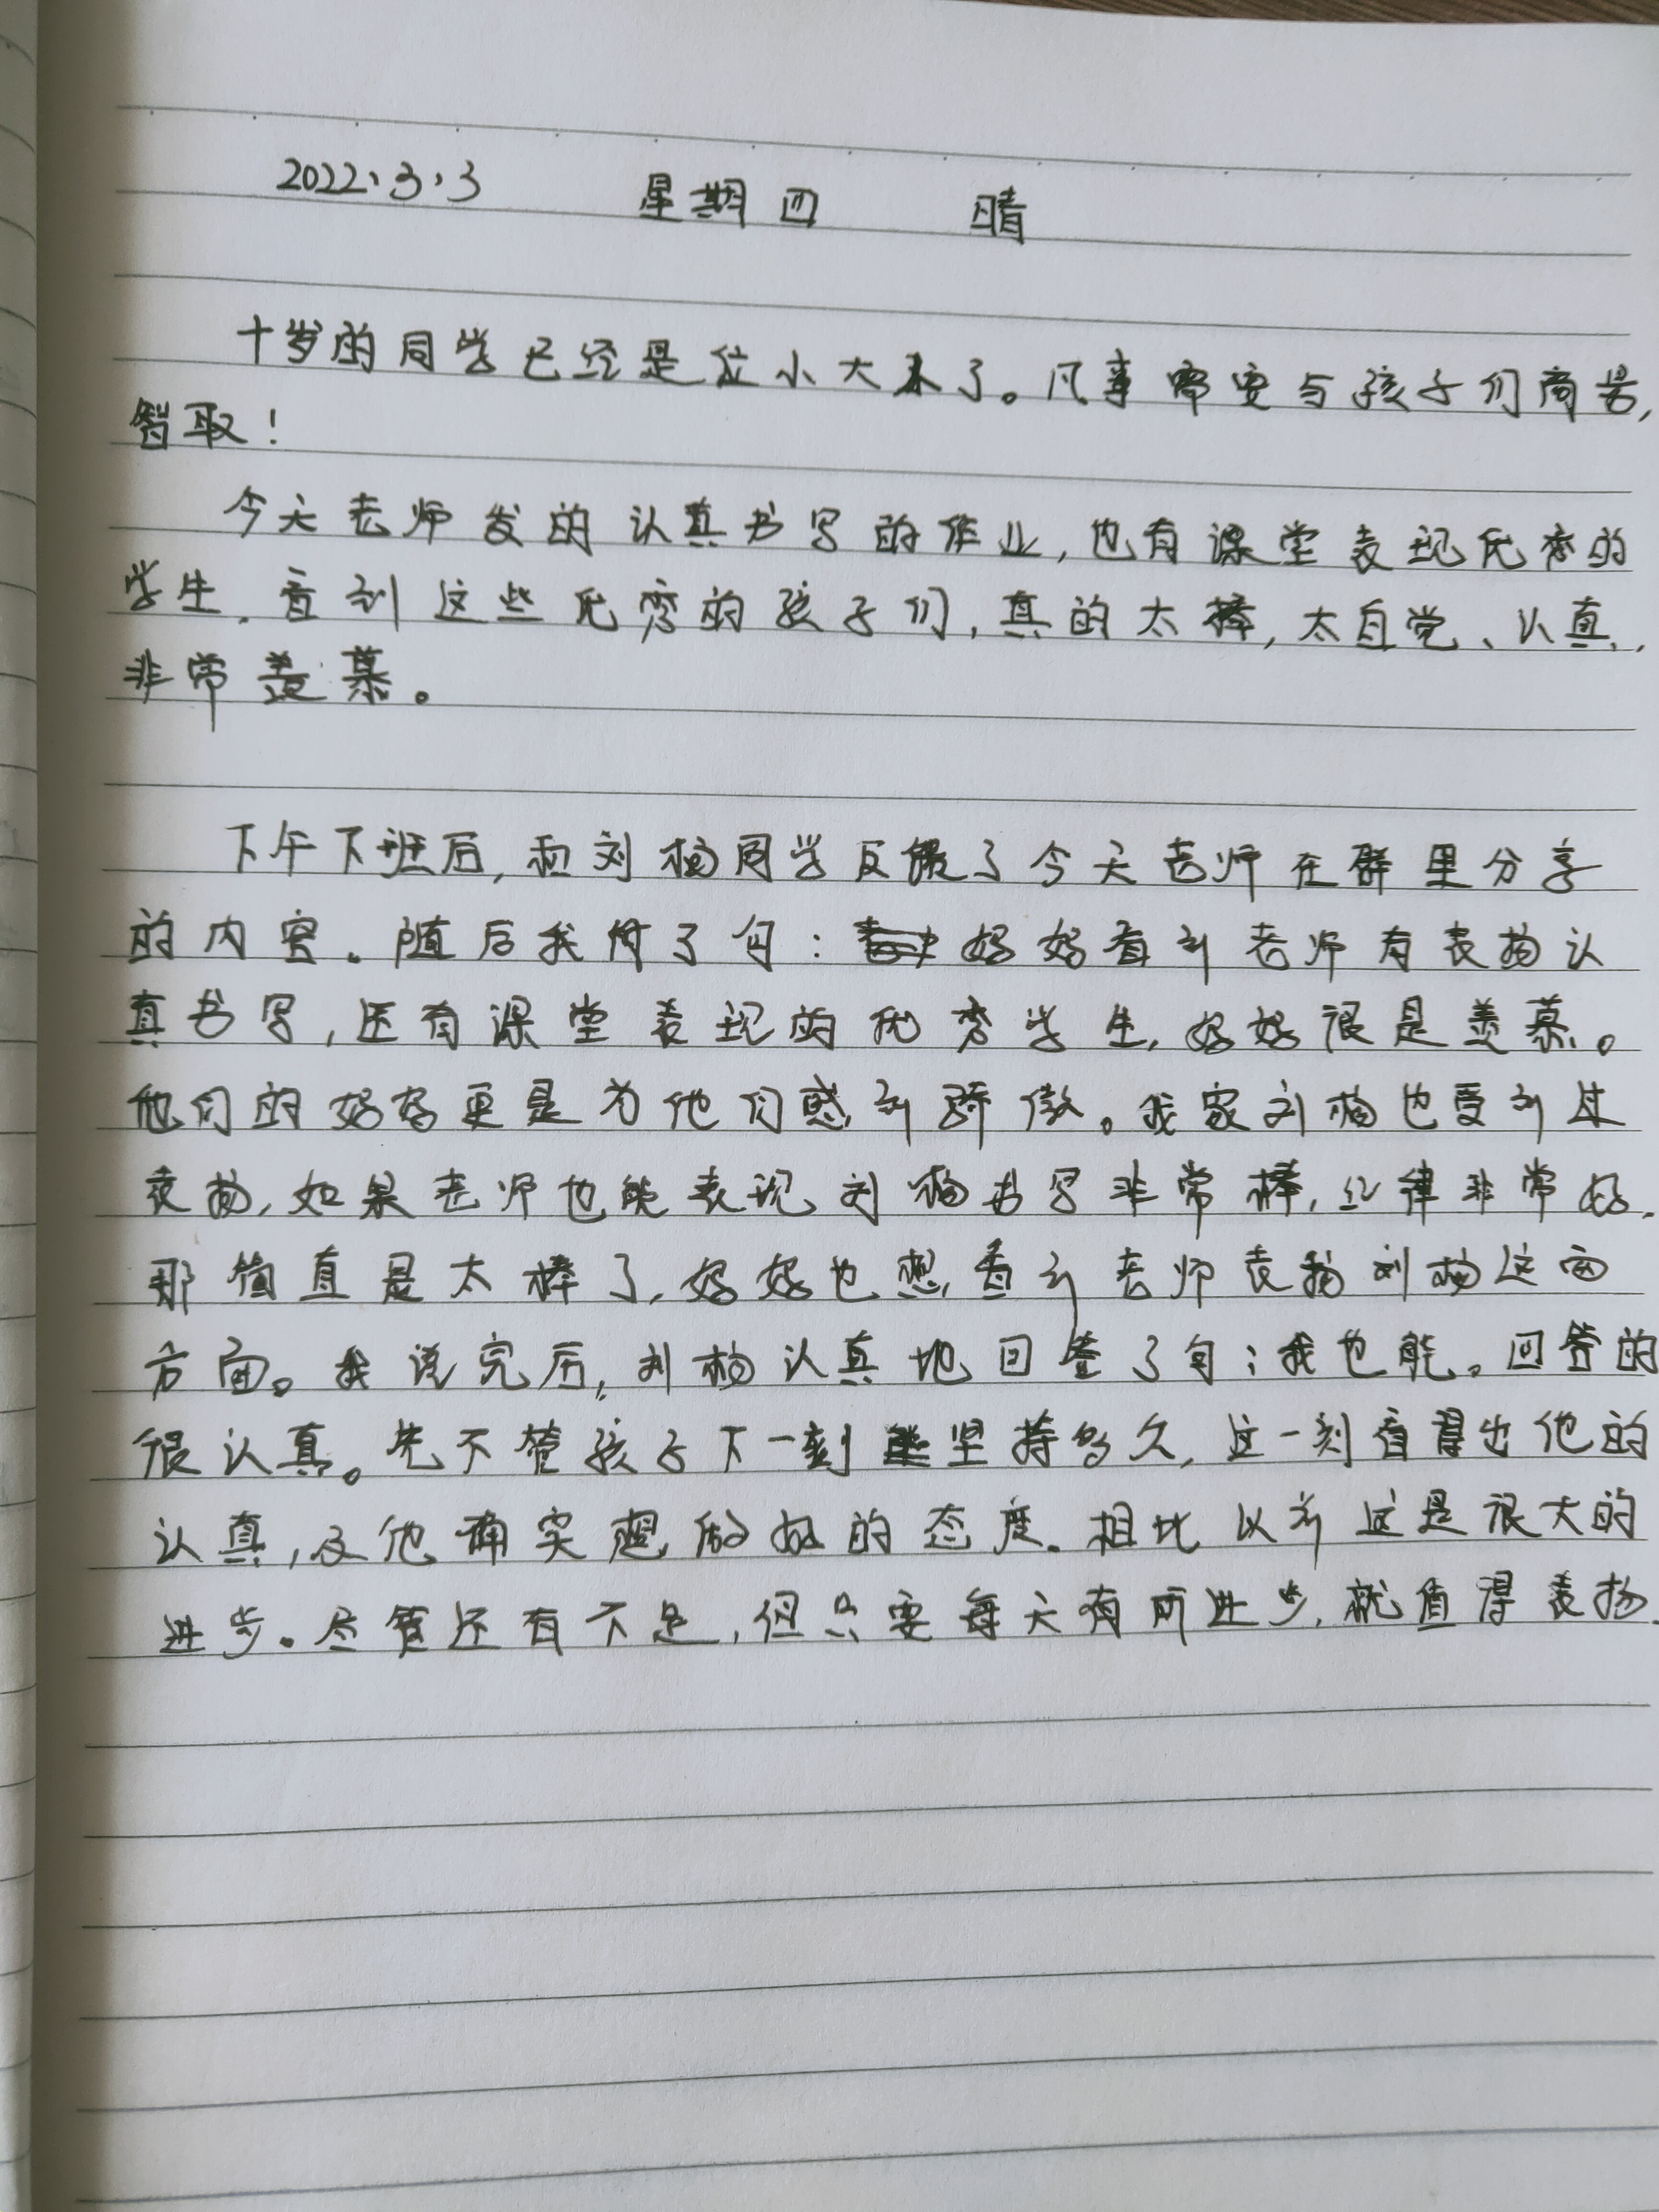 2022.3.3 星期四 晴
十岁的同学已经是位小大人了。凡事需要与孩子们商量,
智取!
今天老师发的认真书写的作业,也有课堂表现优秀的
学生.看到这些优秀的孩子们,真的太棒,太自觉、认真,
非常羡慕。
下午下班后,和刘杨同学反馈了今天老师在群里分享
的内容。随后我付了句: 妈妈看到老师有表扬认
真书写,还有课堂表现的优秀学生,妈妈很是羡慕。
他们的妈妈更是为他们感到骄傲。我家刘杨也受到过
表扬,如果老师也能表现刘杨书写非常棒,纪律非常好.
那简直是太棒了,妈妈也想看到老师表扬刘杨这两
方面。我说完后,刘杨认真地回答了句:我也能。回答的
很认真。先不管孩子下一刻坚持多久,这一刻看得出他的
认真,及他确实想做好的态度.相比以前这是很大的
进步。尽管还有不足,但只要每天有所进步,就值得表扬.